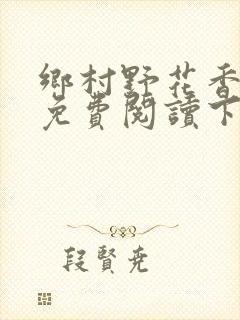 鄉村野花香
免費閱讀下
段賢尭